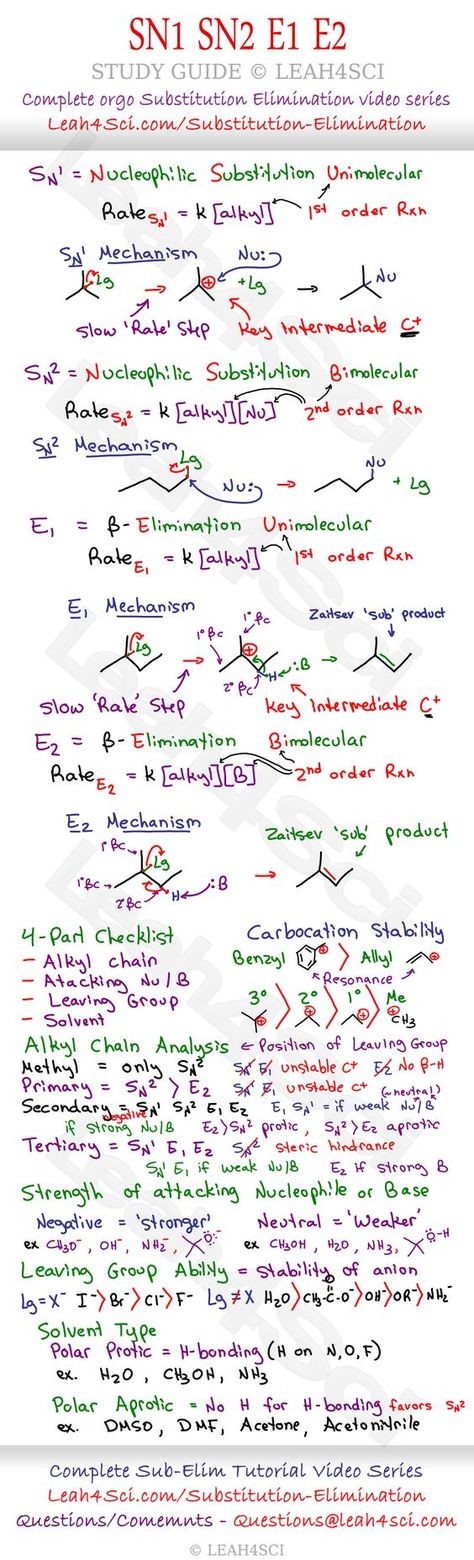 SN1 SN2 E1 E2
STUDY GUIDE © LEAH4SCI
Complete orgo Substitution Elimination video series
Leah4Sci.com/Substitution-Elimination
SN1 = Nucleophilic Substitution Unimolecular
Rate SN1 = k [alkyl] 1st order Rxn
SN1 Mechanism Nu:
Lg + +Lg Nu
Slow 'Rate' Step Key Intermediate C+
SN2 = Nucleophilic Substitution Bimolecular
Rate SN2 = k [alkyl][Nu] 2nd order Rxn
SN2 Mechanism
Lg Nu: Nu + Lg
E1 = β-Elimination Unimolecular
Rate E1 = k [alkyl] 1st order Rxn
E1 Mechanism 1° βc 1° βc Zaitsev 'sub' product
Lg + H :B
2° βc
Slow 'Rate' Step Key Intermediate C+
E2 = β-Elimination Bimolecular
Rate E2 = k [alkyl][B] 2nd order Rxn
E2 Mechanism Zaitsev 'sub' product
1° βc Lg
1° βc :B
2° βc H
4-Part Checklist Carbocation Stability
- Alkyl chain Benzyl + > Allyl +
- Atacking Nu/B Resonance
- Leaving Group 3° > 2° > 1° > Me
- Solvent + + + +CH3
Alkyl Chain Analysis ← Position of Leaving Group
Methyl = only SN2 SN1 E1 unstable C+ E2 No β-H
Primary = SN2 > E2 SN1 E1 unstable C+ (~neutral)
Secondary = SN1 SN2 E1 E2 E1 SN1 = if weak Nu/B
negative
if strong Nu/B E2>SN2 protic, SN2>E2 aprotic
Tertiary = SN1 E1 E2 SN2 steric hindrance
SN1 E1 if weak Nu/B E2 if strong B
Strength of attacking Nucleophile or Base
Negative = 'stronger' Neutral = 'Weaker'
ex CH3O-, OH-, NH2-, O- ex CH3OH, H2O, NH3, O-H
Leaving Group Ability = Stability of anion
Lg=X- I->Br->Cl->F- Lg≠X H2O>CH3-C-O->OH->OR->NH2-
O
Solvent Type
Polar Protic = H-bonding (H on N,O,F)
ex. H2O, CH3OH, NH3
Polar Aprotic = No H for H-bonding favors SN2
ex. DMSO, DMF, Acetone, Acetonitrile
Complete Sub-Elim Tutorial Video Series
Leah4Sci.com/Substitution-Elimination
Questions/Comemnts - Questions@leah4sci.com
© LEAH4SCI